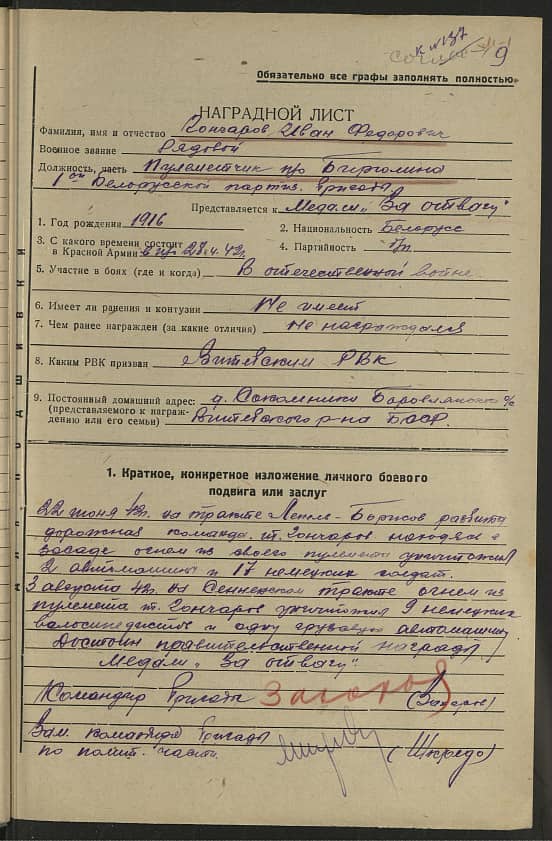 к №187
9
Обязательно все графы заполнять полностью.
НАГРАДНОЙ ЛИСТ
Фамилия, имя и отчество Гончаров Иван Федорович
Военное звание Рядовой
Должность, часть Пулеметчик п/о Бирюлина
1ой Белорусской партиз. Бригады
Представляется к Медали „За отвагу"
1. Год рождения 1916
2. Национальность Белорусс
3. С какого времени состоит
в Красной Армии 28.4.42г.
4. Партийность б/п
5. Участие в боях (где и когда) В отечественной войне
6. Имеет ли ранения и контузии Не имеет
7. Чем ранее награжден (за какие отличия) Не награждался
8. Каким РВК призван Витебским РВК
9. Постоянный домашний адрес: д. Сокольники Боровлянского с/с
(представляемого к награж-
дению или его семьи) Витебского р-на БССР.
1. Краткое, конкретное изложение личного боевого
подвига или заслуг
22 июня 42г. на тракте Лепель-Борисов разбита
дорожная команда. т. Гончаров находясь в
засаде огнем из своего пулемета уничтожил
2 автомашины и 17 немецких солдат.
3 августа 42г. на Сенненском тракте огнем из
пулемета т. Гончаров уничтожил 9 немецких
велосипедистов и одну грузовую автомашину
Достоин правительственной награды
Медали „За отвагу"
Командир Бригады (Захаров)
Зам. командира Бригады
по полит. части. (Шкредо)